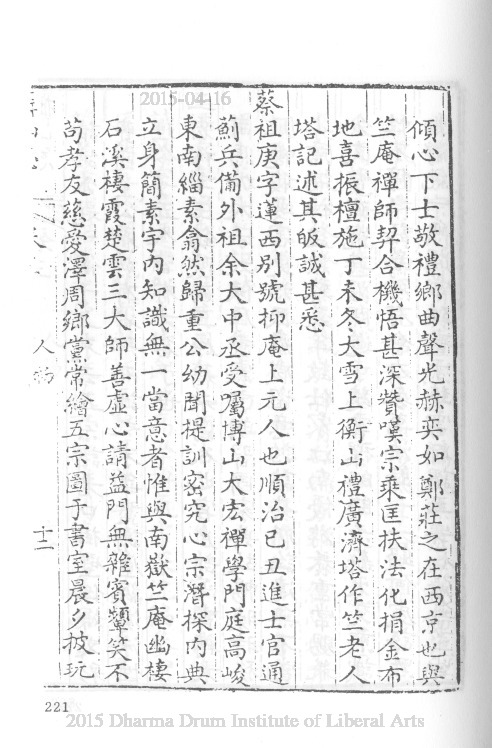 傾心下士敬禮鄉曲聲光赫奕如鄭莊之在西京也與
竺庵禪師契合機悟甚深贊嘆宗乘匡扶法化捐金布
地喜振檀施丁未冬大雪上衡山禮廣濟塔作竺老人
塔記述其皈誠甚悉
蔡祖庚字蓮西別號抑庵上元人也順治己丑進士官通
薊兵備外祖余大中丞受囑博山大宏禪學門庭高峻
東南緇素翕然歸重公幼聞提訓密究心宗潛探內典
立身簡素宇內知識無一當意者惟與南嶽竺庵幽棲
石溪棲霞楚雲三大師善虛心請益門無雜賓顰笑不
茍孝友慈愛澤周鄉黨常繪五宗圖于書室晨夕披玩
人物
十二
221
2015-04-16
2015 Dharma Drum Institute of Liberal Arts